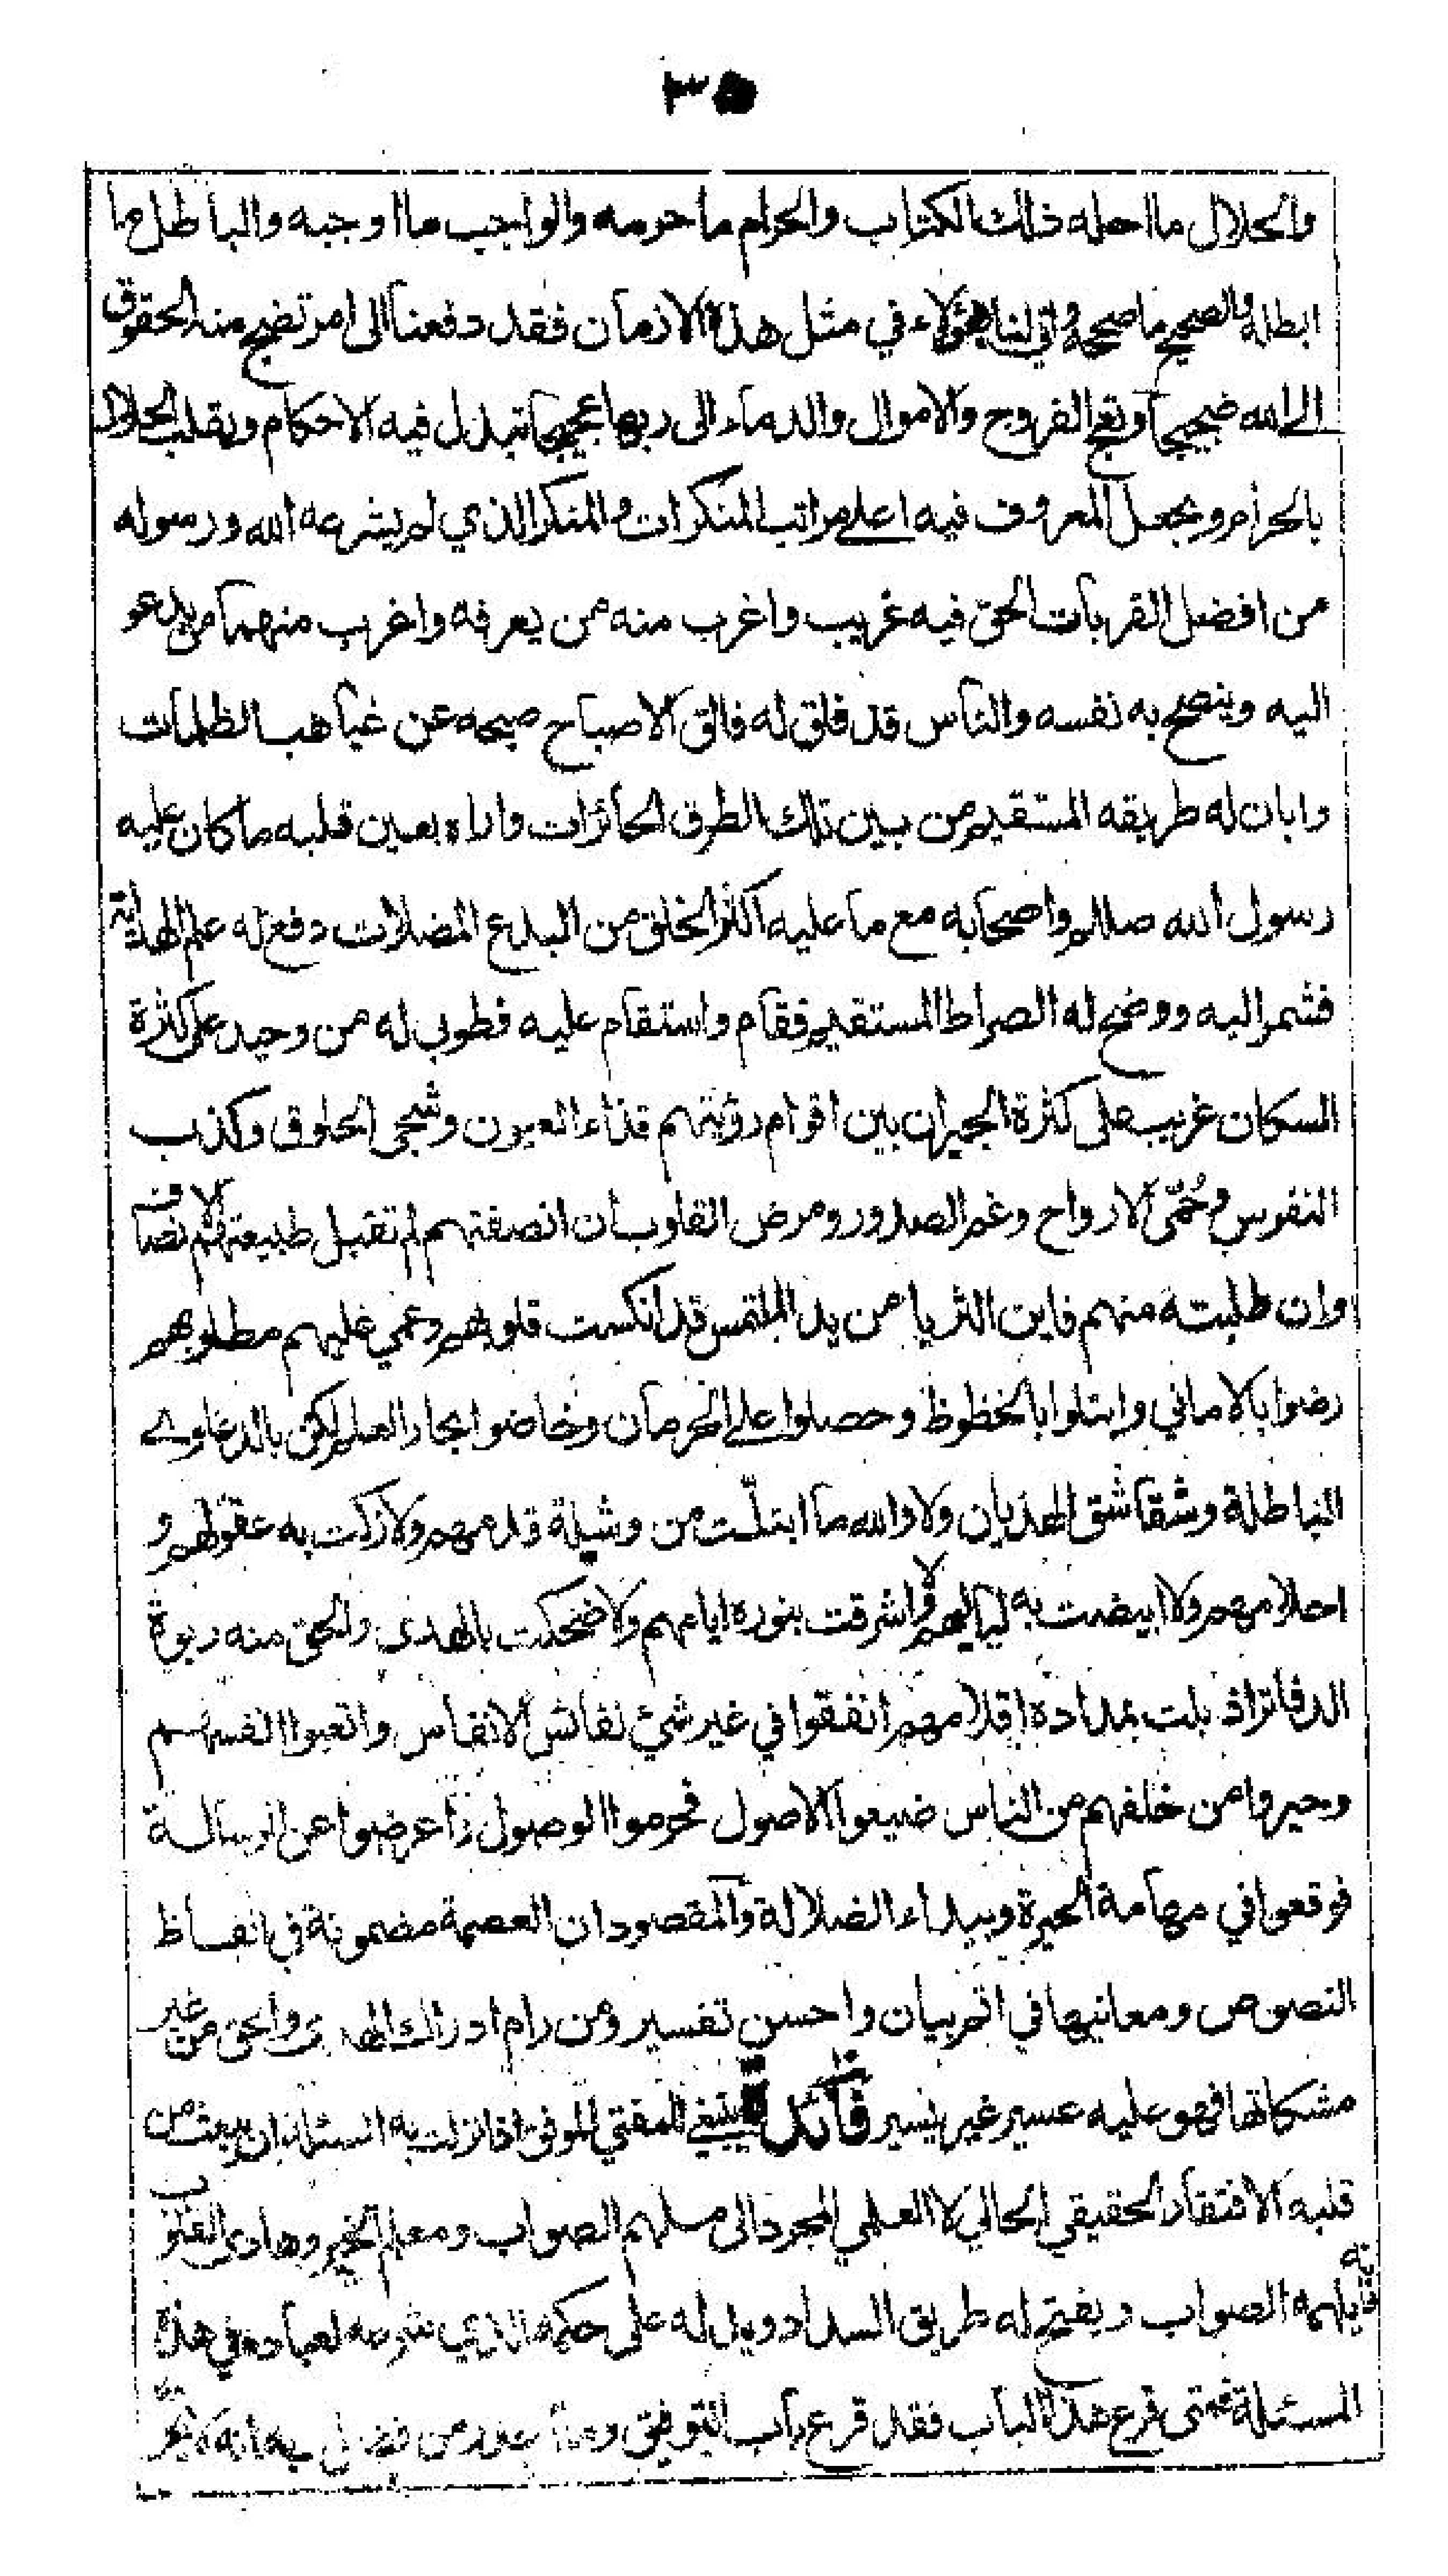 ٣٥
والحلال ما احله ذلك الكتاب والحرام ما حرمه والواجب ما اوجبه والباطل ما
ابطله والصحيح ما صححه واني لنا بهؤلاء في مثل هذا الازمان فقد دفعنا الى امر تضج منه الحقوق
الى الله ضجيجا وتعج الفروج والاموال والدماء الى ربها عجيجا تبدل فيه الاحكام ويقلب الحلال
بالحرام ويجعل المعروف فيه اعلى مراتب المنكرات والمنكر الذي لم يشرعه الله ورسوله
من افضل القربات الحق فيه غريب واغرب منه من يعرفه واغرب منهما من يدعو
اليه وينصح به نفسه والناس قد فلق له فالق الاصباح صبحه عن غياهب الظلمات
وابان له طريقه المستقيم من بين تلك الطرق الجائزات واراه بعين قلبه ما كان عليه
رسول الله صللم واصحابه مع ما عليه اكثر الخلق من البدع المضلات دفع له علم الهداية
فشمر اليه ووضح له الصراط المستقيم فقام واستقام عليه فطوبى له من وحيد على كثرة
السكان غريب على كثرة الجيران بين اقوام رؤيتهم قذاء العيون وشجى الحلوق وكذب
النفوس وحُمّى الارواح وغم الصدور ومرض القلوب ان انصفتهم لم تقبل طبيعتهم الانصاف
وان طلبته منهم فاين الثريا من يد الملتمس قد انكست قلوبهم وعمي عليهم مطلوبهم
رضوا بالاماني وابتلوا بالحظوظ وحصلوا على الحرمان وخاضوا بحار العلم لكن بالدعاوى
الباطلة وشقاشق الهذيان ولا والله ما ابتلّت من وشيلة قدمهم ولا زكت به عقولهم و
احلامهم ولا ابيضت به لياليهم ولا اشرقت بنوره ايامهم ولا ضحكت بالهدى والحق منه وجوه
الدفاتر اذ بلت بمداده اقلامهم انفقوا في غير شيء نفائس الانفاس واتعبوا انفسهم
وحيروا من خلفهم من الناس ضيعوا الاصول فحرموا الوصول واعرضوا عن الرسالة
فوقعوا في مهامة الحيرة وبيداء الضلالة والمقصود ان العصمة مضمونة في الفاظ
النصوص ومعانيها في اتم بيان واحسن تفسير ومن رام ادراك الهدى والحق من غير
مشكاتها فهو عليه عسير غير يسير فائدة ينبغي للمفتي الموفق اذا نزلت به المسئلة ان يبعث من
قلبه الافتقار الحقيقي الحالي لا العلمي المجرد الى ملهم الصواب ومعلم الخير وهادي القلوب
انه يلهمه الصواب ويفتح له طريق السداد ويدل له على حكمه الذي شرعه لعباده في هذه
المسئلة فمتى قرع هذا الباب فقد قرع باب التوفيق وما من فضل